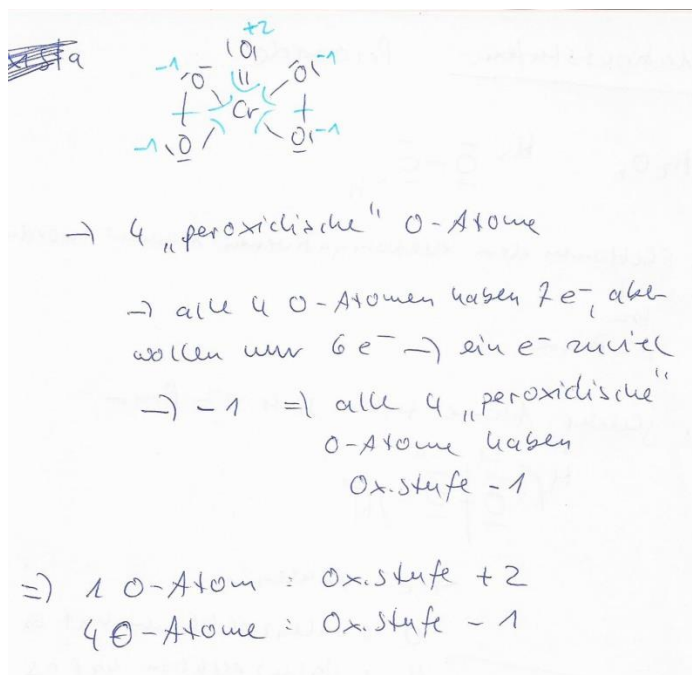 +2
|O|
-1 O -1
Cr
-1 O O -1
→ 4 „peroxidische" O-Atome
→ alle 4 O-Atomen haben 7 e⁻, aber
wollen nur 6 e⁻ → ein e⁻ zuviel
→ -1 ⇒ alle 4 „peroxidische"
O-Atome haben
Ox.stufe -1
⇒ 1 O-Atom : Ox.stufe +2
4 O-Atome : Ox.stufe -1